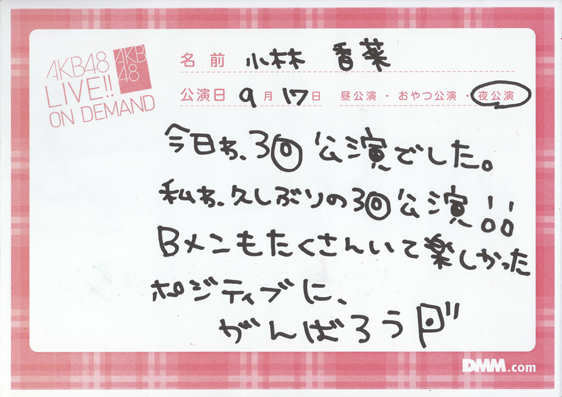 AKB48
LIVE!!
ON DEMAND
AKB
48
名前 小林 香菜
公演日 9月17日 昼公演・おやつ公演・夜公演
今日わ、3回公演でした。
私わ、久しぶりの3回公演
Bメンもたくさんいて楽しかった
ポジティブに、
がんばろう
DMM.com